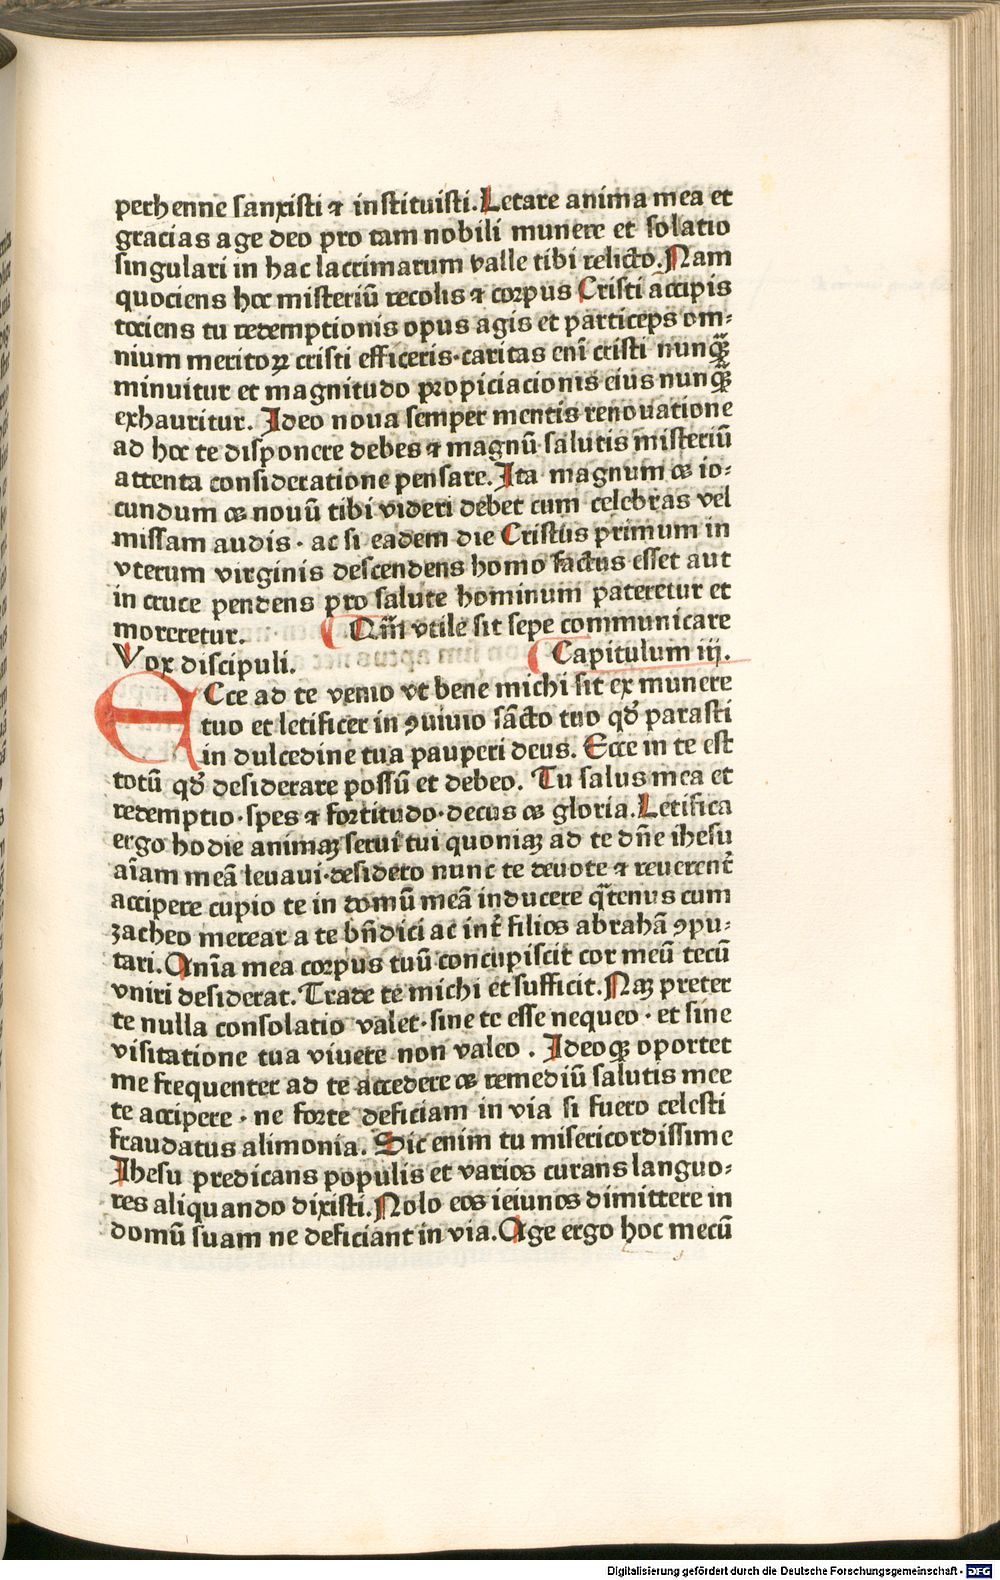 perhenne sanxisti ⁊ instituisti. Letare anima mea et
gracias age deo pro tam nobili munere et solatio
singulari in hac lacrimarum valle tibi relicto. Nam
quociens hoc misteriū recolis ⁊ corpus Cristi accipis
tociens tu redemptionis opus agis et particeps om⸗
nium meritoꝝ cristi efficeris· caritas eni̅ cristi nunqꝫ
minuitur et magnitudo propiciacionis eius nunqꝫ
exhauritur. Ideo noua semper mentis renouatione
ad hoc te disponere debes ⁊ magnū salutis misteriū
attenta consideratione pensare. Ita magnum ac io⸗
cundum ac nouū tibi videri debet cum celebras vel
missam audis · ac si eadem die Cristus primum in
vterum virginis descendens homo factus esset aut
in cruce pendens pro salute hominum pateretur et
moreretur. Qm̅ vtile sit sepe communicare
Vox discipuli. Capitulum iij.
ECce ad te venio vt bene michi sit ex munere
tuo et letificer in ꝯuiuio sāc̄to tuo qd̛ parasti
in dulcedine tua pauperi deus. Ecce in te est
totū qd̛ desiderare possū et debeo. Tu salus mea et
redemptio· spes ⁊ fortitudo· decus ac gloria. Letifica
ergo hodie animaꝫ serui tui quoniaꝫ ad te dn̄e ihesu
ai̅am meā leuaui· desidero nunc te deuote ⁊ reuerent̛
accipere cupio te in domū meā inducere q̄tenus cum
zacheo merear a te bn̄dici ac int̛ filios abrahā ꝯpu⸗
tari. Ani̅a mea corpus tuū concupiscit cor meū tecū
vniri desiderat. Trade te michi et sufficit. Naꝫ preter
te nulla consolatio valet· sine te esse nequeo · et sine
visitatione tua viuere non valeo . Ideoqꝫ oportet
me frequenter ad te accedere ac remediū salutis mee
te accipere · ne forte deficiam in via si fuero celesti
fraudatus alimonia. Sic enim tu misericordissime
Ihesu predicans populis et varios curans languo⸗
res aliquando dixisti. Nolo eos ieiunos dimittere in
domū suam ne deficiant in via. Age ergo hoc mecū
Digitalisierung gefördert durch die Deutsche Forschungsgemeinschaft - DFG